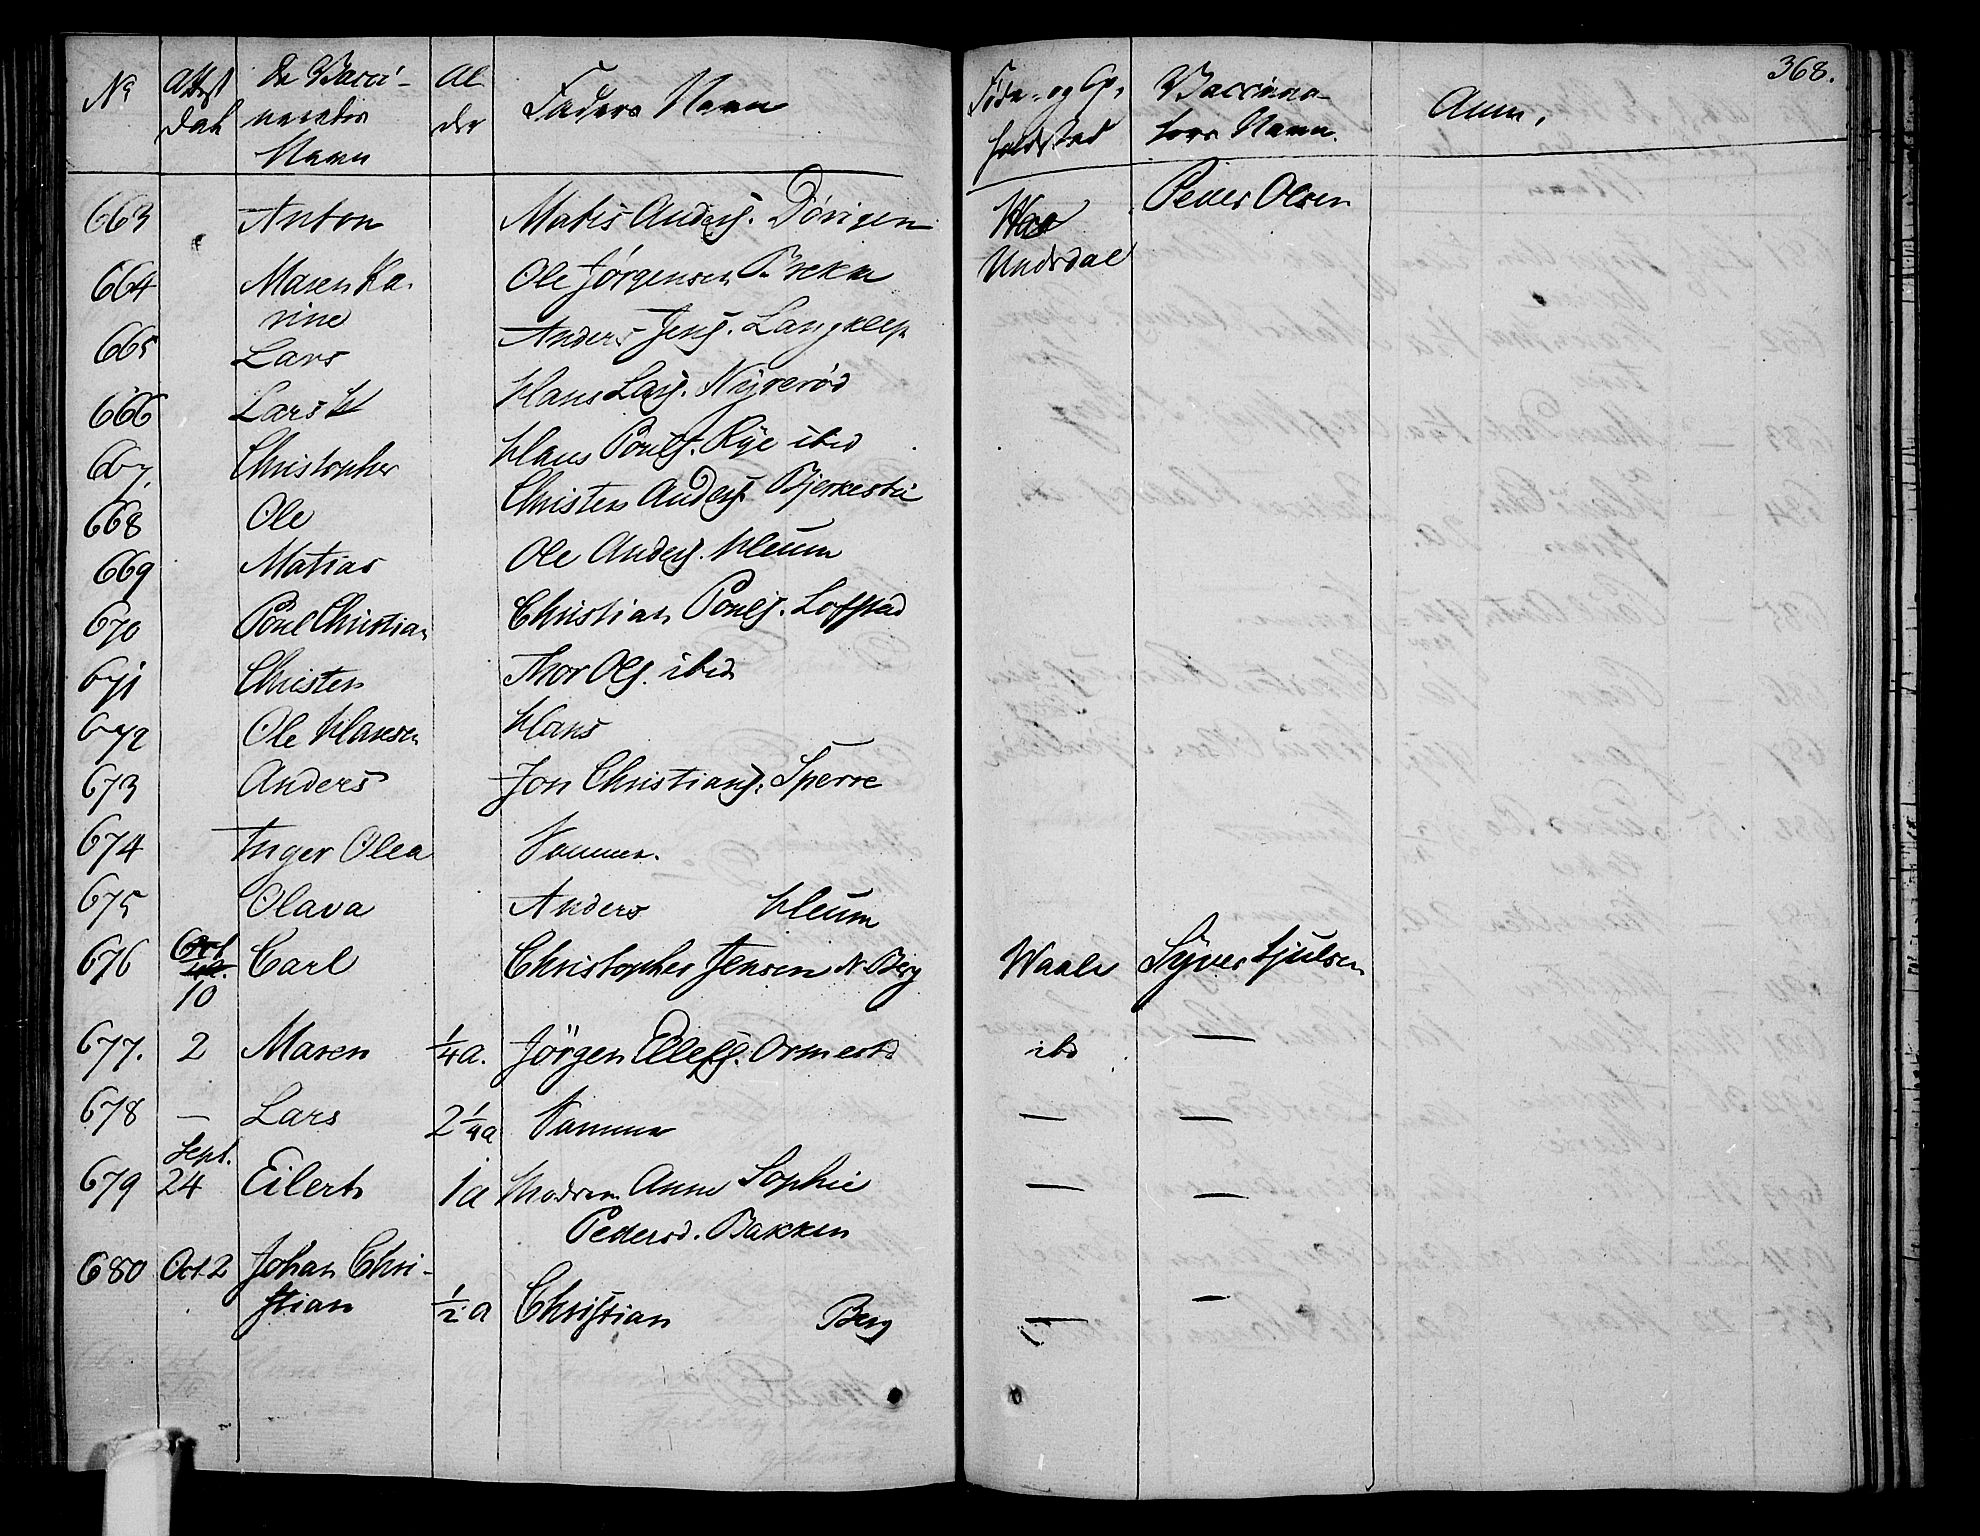 368.
No Attest Dat De Vacci- neredes Navn Al der Faders Navn Føde- og Op- holdsted Vaccina- tors Navn. Anm.
663 Anton Matis Anders. Dörigen Peder Olsen
Undrdal
664 Maren Ka- rine Ole Jörgensen Brekke
665 Lars Anders Jens. Langklep
666 Lars H Hans Lars. Nyrerød
667. Christopher Hans Pouls. Rye ibid
668 Ole Christen Anders. Bjerkestu
669 Matias Ole Anders. Hleum
670 Poul Christian Christian Pouls. Lofstad
671 Christen Thor Ols. ibid
672 Ole Hansen Hans
673 Anders Jon Christians. Sperre
674 Inger Olea Samme.
675 Olava Anders Hleum
676 Oct. 10 Carl Christopher Jensen N. Berg Waale Syver Hjulsen
677. 2 Maren 1/4 a. Jörgen Ellefs. Ormestd ibd —
678 — Lars 2 1/4 a Samme — —
679 Sept. 24 Eilert 1 a Modren Anne Sophie — —
Pedersd. Bakken
680 Oct. 2 Johan Chri- stian 1/2 a Christian Berg — —